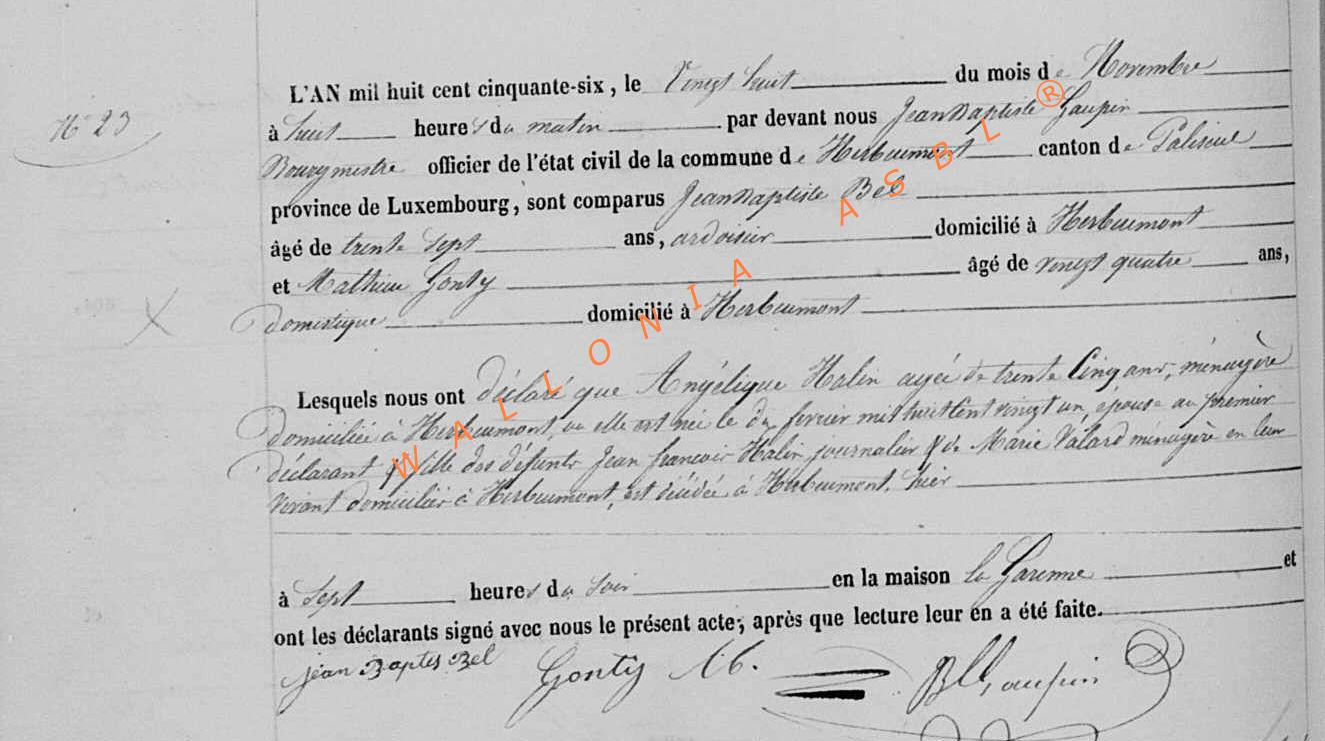 N° 23
L'AN mil huit cent cinquante-six, le Vingt huit du mois de Novembre
à huit heures du matin par devant nous Jean Baptiste Gaupin
Bourgmestre officier de l'état civil de la commune de Herbeumont canton de Paliseul
province de Luxembourg, sont comparus Jean Baptiste Bel
âgé de trente sept ans, ardoisier domicilié à Herbeumont
et Mathieu Gonty âgé de vingt quatre ans,
Domestique domicilié à Herbeumont
Lesquels nous ont déclaré que Angélique Halin agée de trente Cinq ans, ménagère
domiciliée à Herbeumont, ou elle est née le dix fevrier mil huit Cent vingt un, epouse au premier
déclarant & fille des défunts Jean francois Halin journalier & de Marie Valard ménagère en leur
vivant domiciliés à Herbeumont, est décédée à Herbeumont, hier
à Sept heures du Soir en la maison la Garenne et
ont les déclarants signé avec nous le présent acte, après que lecture leur en a été faite.
jean Baptis Bel Gonty M. JB Gaupin
WALLONIA ASBL ®